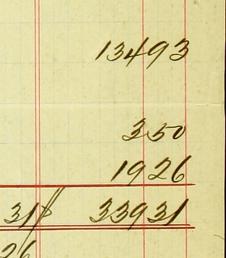 13493
350
1926
318 33931
26